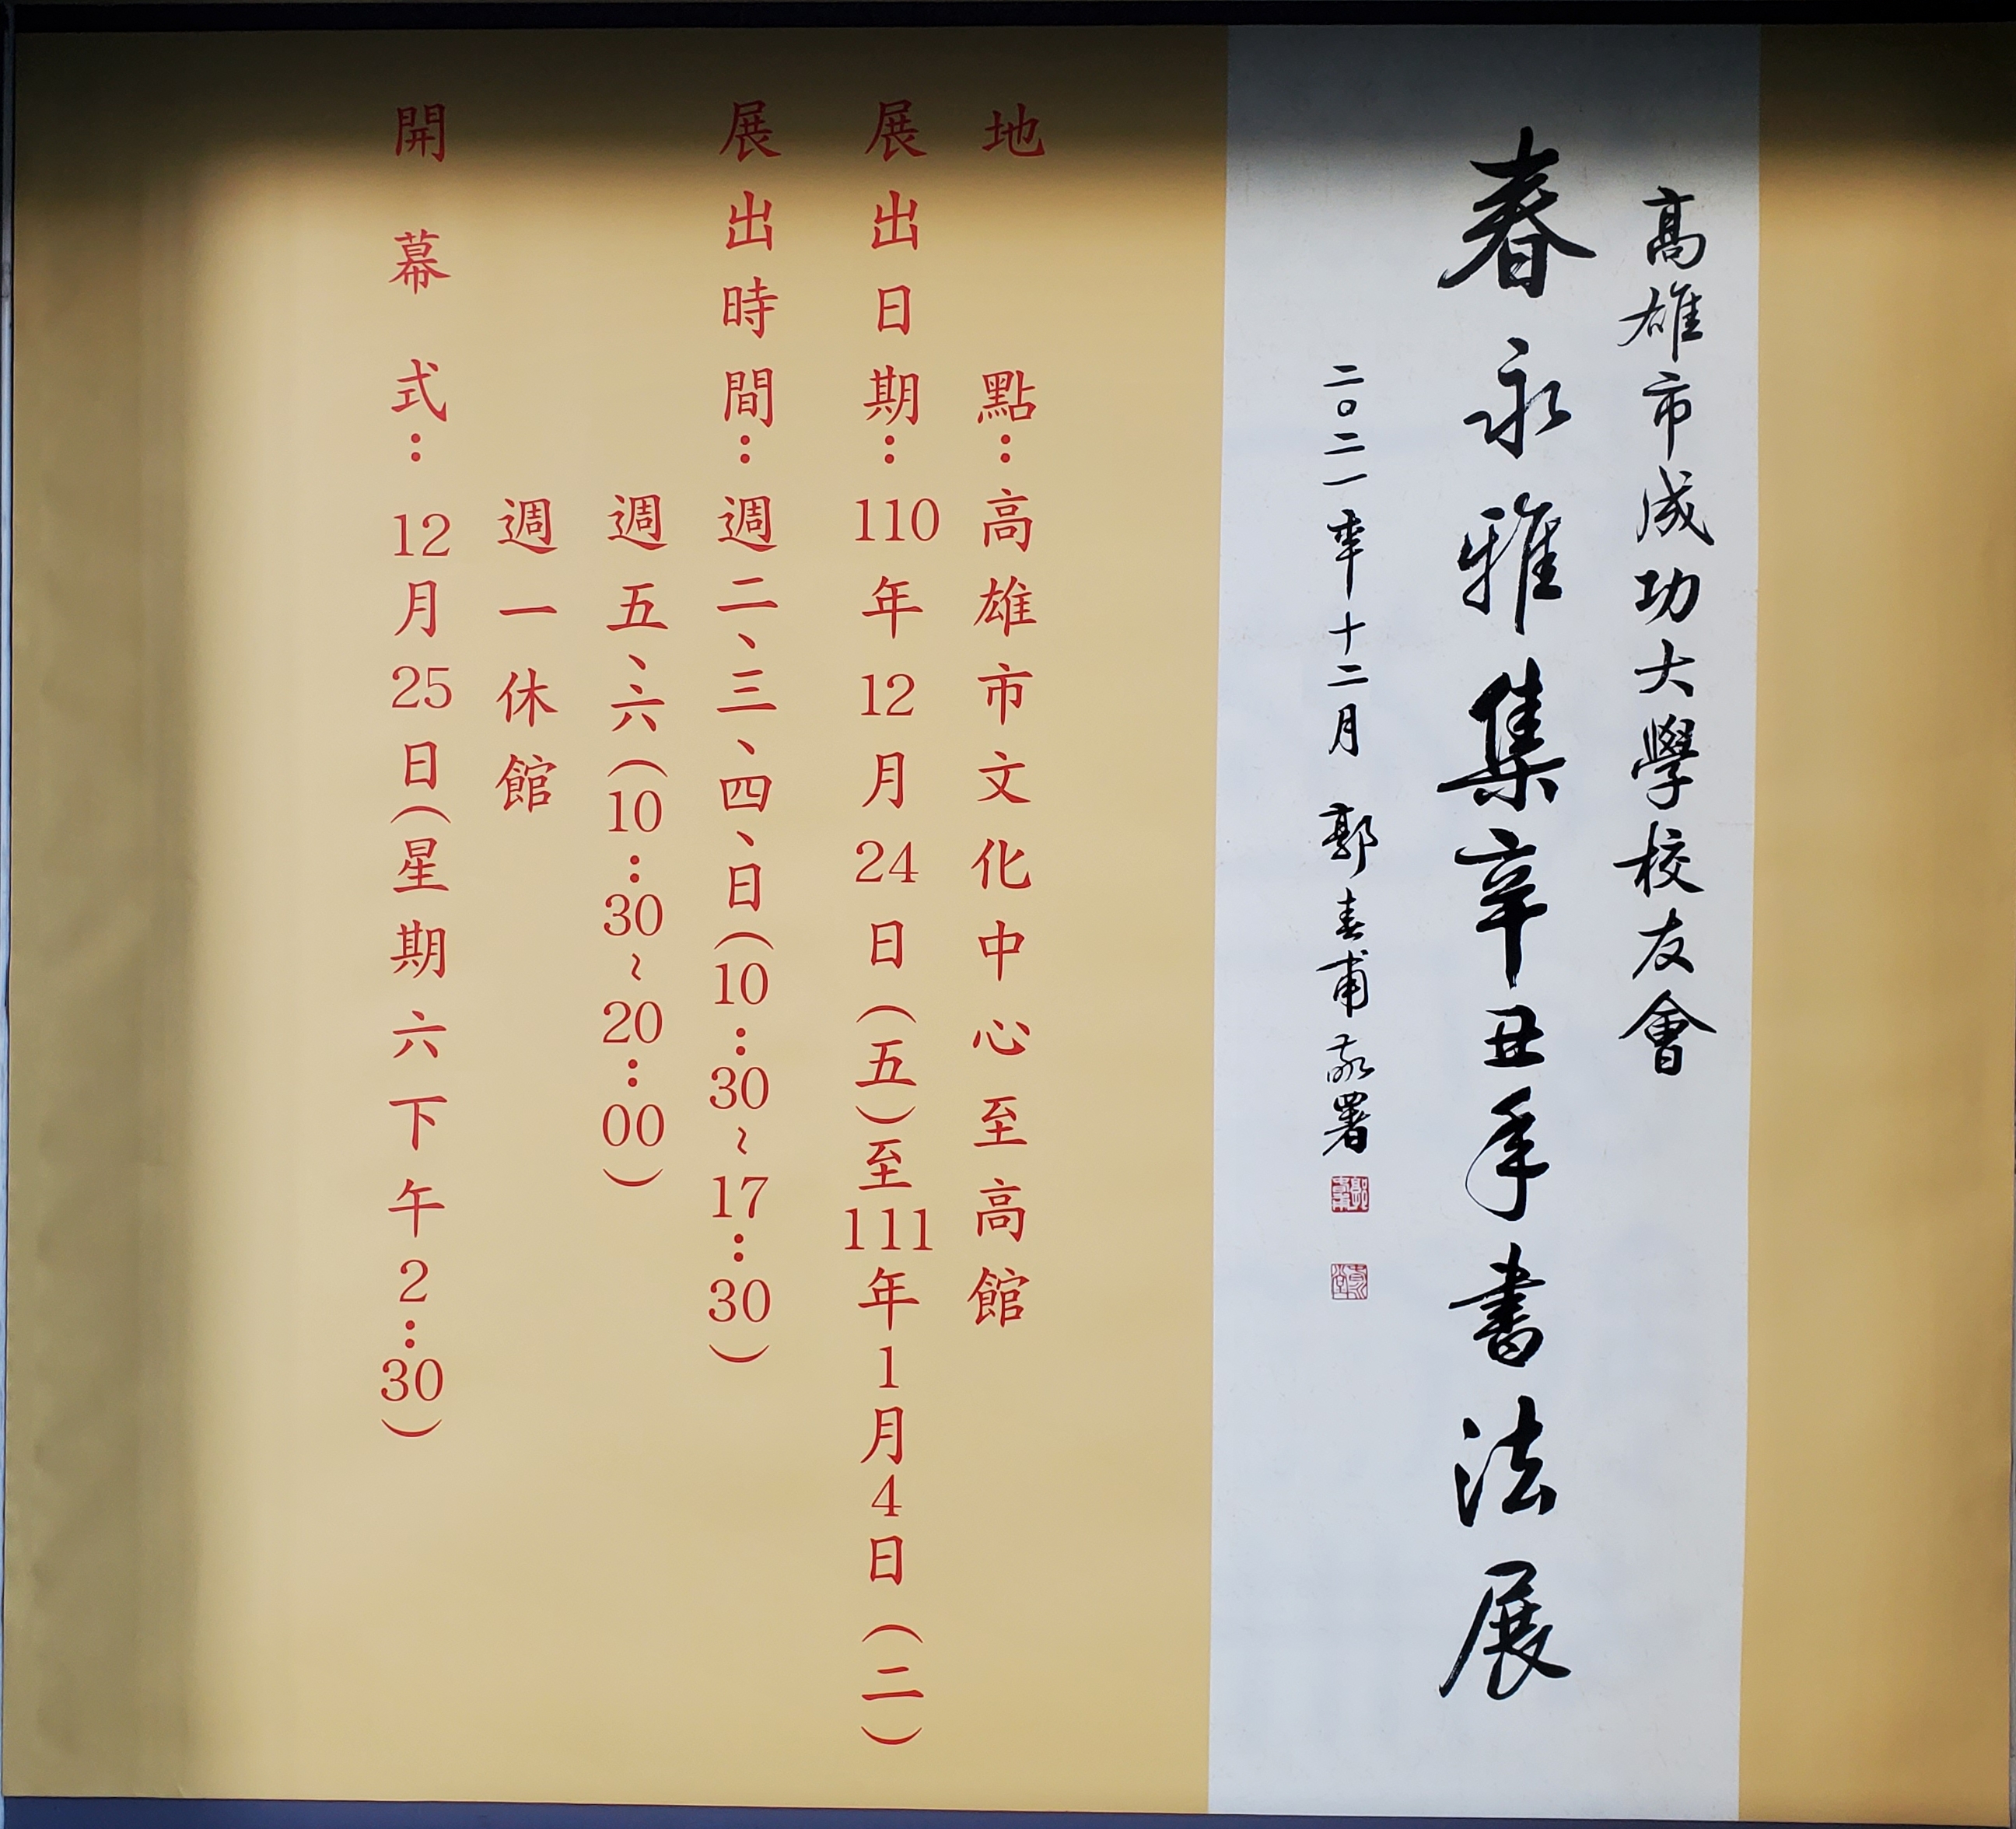 高雄市成功大學校友會
春永雅集辛丑年書法展
二〇二一年十二月 郭春甫敬署
地點：高雄市文化中心至高館
展出日期：110年12月24日（五）至111年1月4日（二）
展出時間：週二、三、四、日（10：30~17：30）
週五、六（10：30~20：00）
週一休館
開幕式：12月25日（星期六下午2：30）